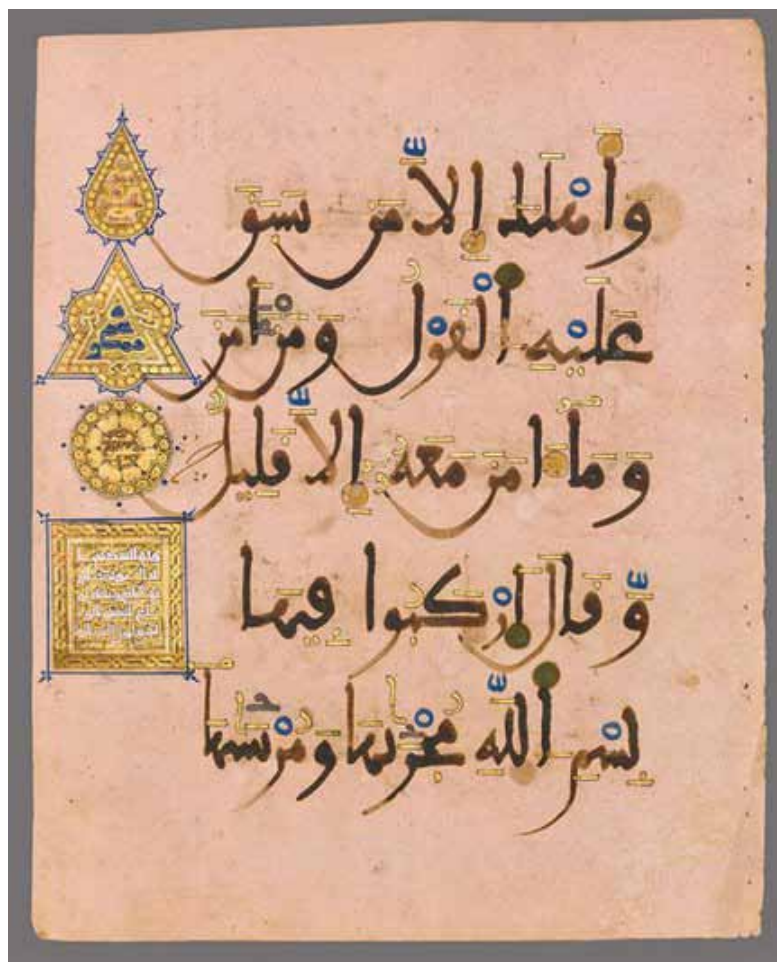 وَأَهْلَكَ إِلَّا مَن سَبَقَ
عَلَيْهِ الْقَوْلُ وَمَنْ ءَامَنَ
وَمَا ءَامَنَ مَعَهُ إِلَّا قَلِيلٌ
وَّقَالَ ارْكَبُوا فِيهَا
بِسْمِ اللَّهِ مُجْرٜىٰهَا وَمُرْسَىٰهَا